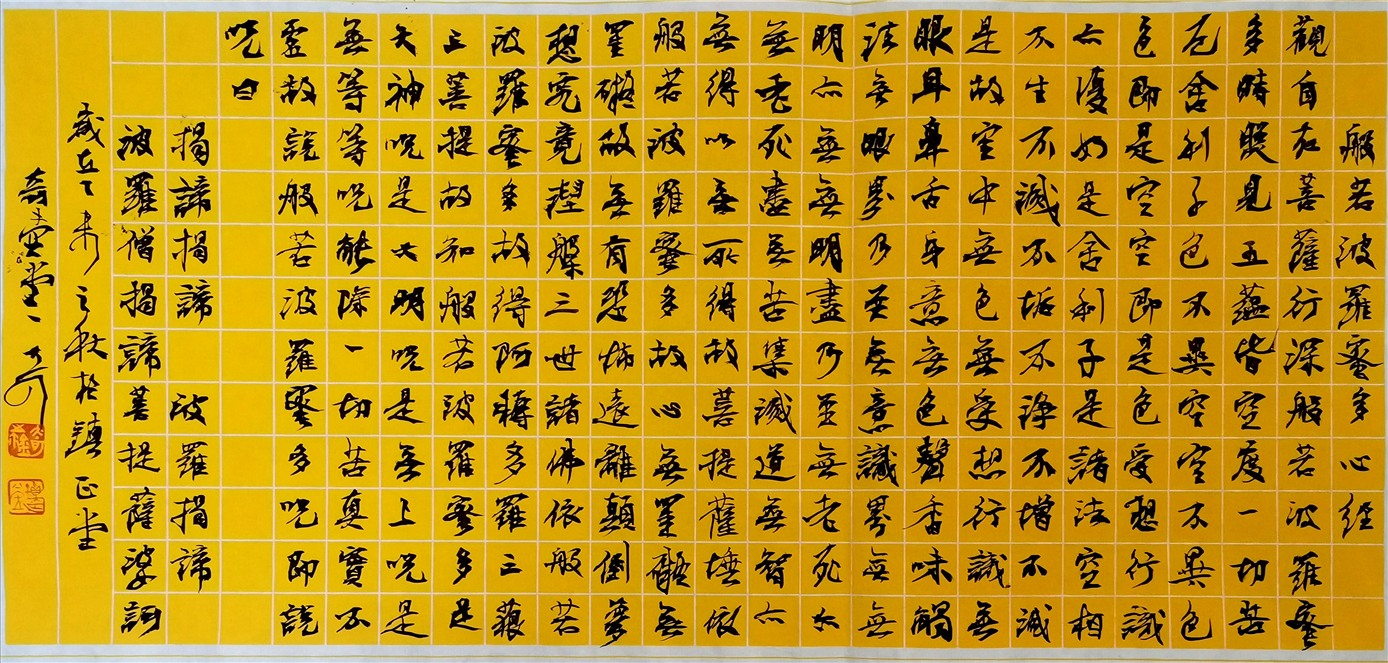 般若波羅蜜多心経
觀自在菩薩行深般若波羅蜜
多時照見五蘊皆空度一切苦
厄舍利子色不異空空不異色
色即是空空即是色受想行識
亦復如是舍利子是諸法空相
不生不滅不垢不淨不增不減
是故空中無色無受想行識無
眼耳鼻舌身意無色聲香味觸
法無眼界乃至無意識界無無
明亦無無明盡乃至無老死亦
無老死盡無苦集滅道無智亦
無得以無所得故菩提薩埵依
般若波羅蜜多故心無罣礙無
罣礙故無有恐怖遠離顛倒夢
想究竟涅槃三世諸佛依般若
波羅蜜多故得阿耨多羅三藐
三菩提故知般若波羅蜜多是
大神咒是大明咒是無上咒是
無等等咒能除一切苦真實不
虛故說般若波羅蜜多咒即說
咒曰
揭諦揭諦 波羅揭諦
波羅僧揭諦菩提薩婆訶
歲在乙未之秋於鎮正堂